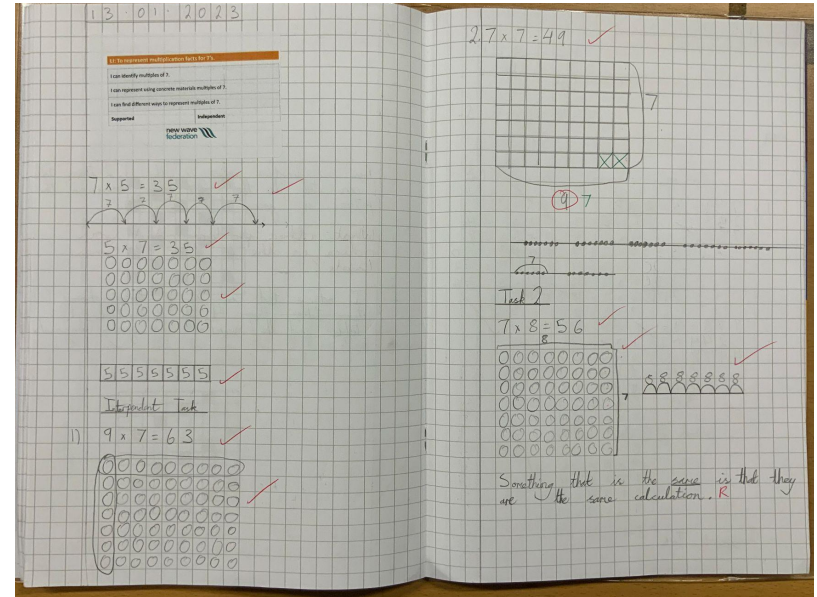 13.01.2023
LI: To represent multiplication facts for 7's.
I can identify multiples of 7.
I can represent using concrete materials multiples of 7.
I can find different ways to represent multiples of 7.
Supported Independent
new wave
federation
7 x 5 = 35
7 7 7 7 7
5 x 7 = 35
5 5 5 5 5 5 5
Task
1) 9 x 7 = 63
2) 7 x 7 = 49
7
9 7
7
Task 2
7 x 8 = 56
8
8 8 8 8 8 8 8
7
Something that is the same is that they
are the same calculation. R